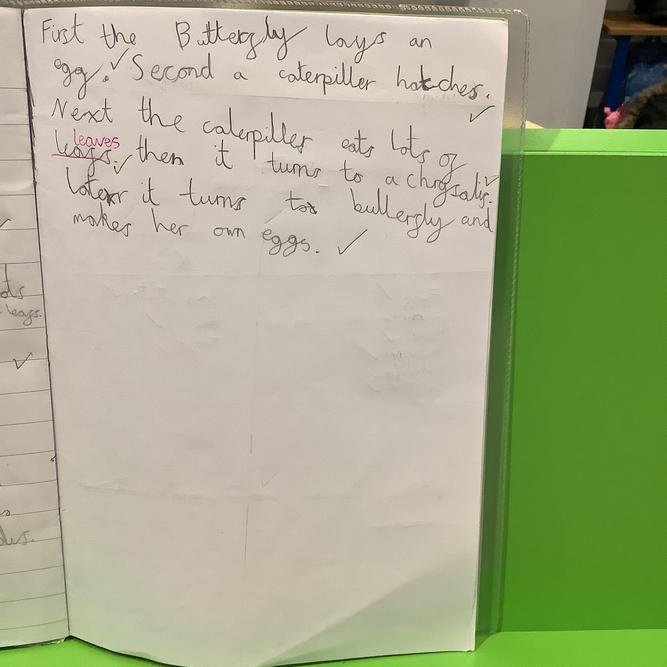 First the Butterfly lays an
egg. Second a caterpiller hatches.
Next the caterpiller eats lots of
leaves
leafs. then it turns to a chrysalis.
later it turns to butterfly and
makes her own eggs.
leafs.